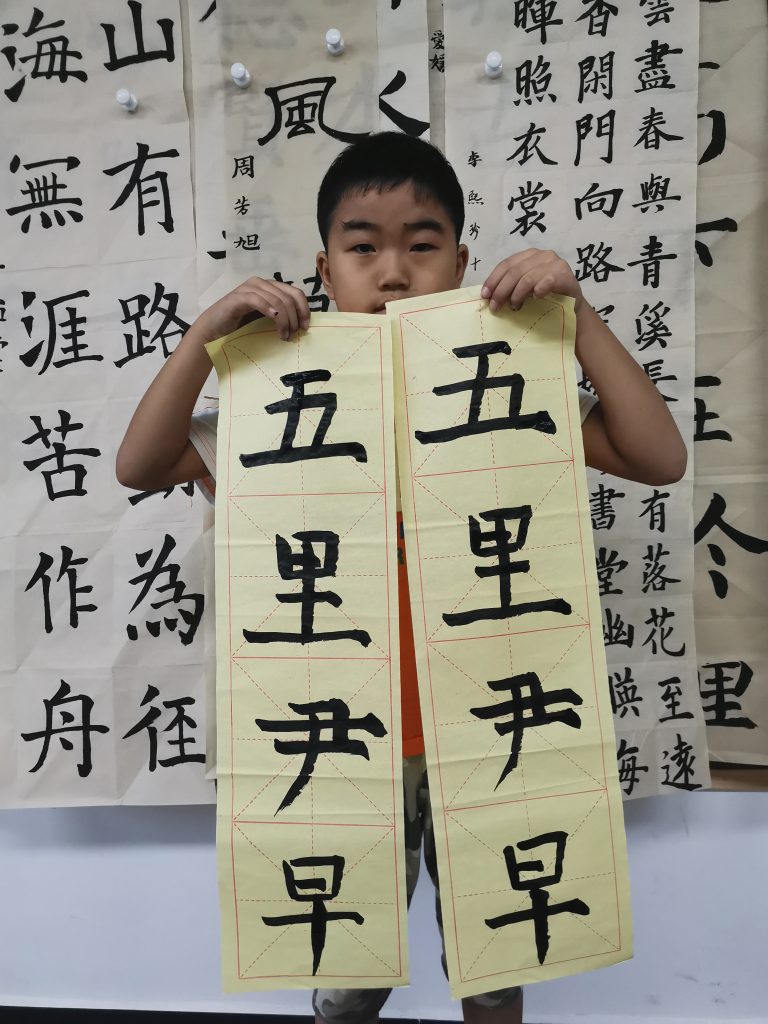 五里尹早
五里尹早
雲盡春與青溪長
有落花至遠
香閑門向路
書堂幽暎海
暉照衣裳
李熙珍十
風
周芳旭
山有路
為径
海無涯苦作舟
里